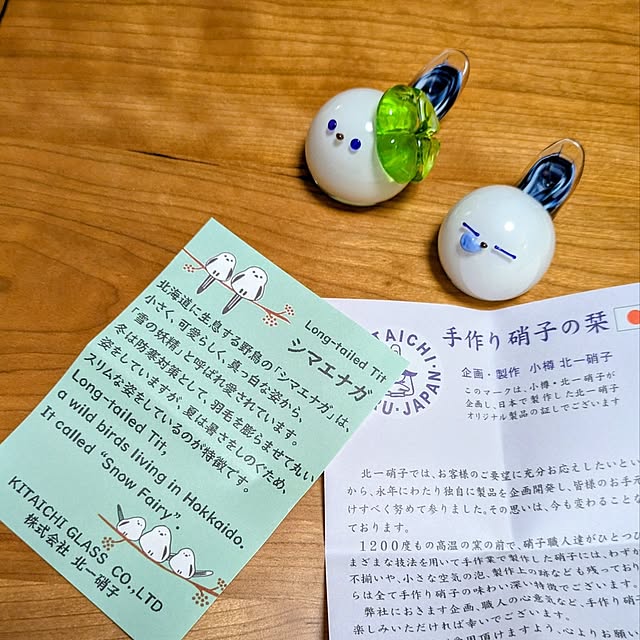 Long-tailed Tit
シマエナガ
北海道に生息する野鳥の「シマエナガ」は、
小さく、可愛らしく、真っ白な姿から、
「雪の妖精」と呼ばれ愛されています。
冬は防寒対策として、羽毛を膨らませて丸い
姿をしていますが、夏は暑さをしのぐため、
スリムな姿をしているのが特徴です。
Long-tailed Tit,
a wild birds living in Hokkaido.
It called "Snow Fairy".
KITAICHI GLASS CO.,LTD
株式会社 北一硝子
TAICHI
U・JAPAN
手作り硝子の栞
企画・製作 小樽 北一硝子
このマークは、小樽・北一硝子が
企画し、日本で製作した北一硝子
オリジナル製品の証しでございます
北一硝子では、お客様のご要望に充分お応えしたいとい
から、永年にわたり独自に製品を企画開発し、皆様のお手元
けすべく努めて参りました。その思いは、今も変わること
ております。
1200度もの高温の窯の前で、硝子職人達がひとつひ
まざまな技法を用いて手作業で製作した硝子には、わず
不揃いや、小さな空気の泡、製作上の跡なども残ってお
らは全て手作り硝子の味わい深い特徴でございます。
弊社におきます企画、職人の心意気など、手作り硝
楽しみいただければ幸いでございます。